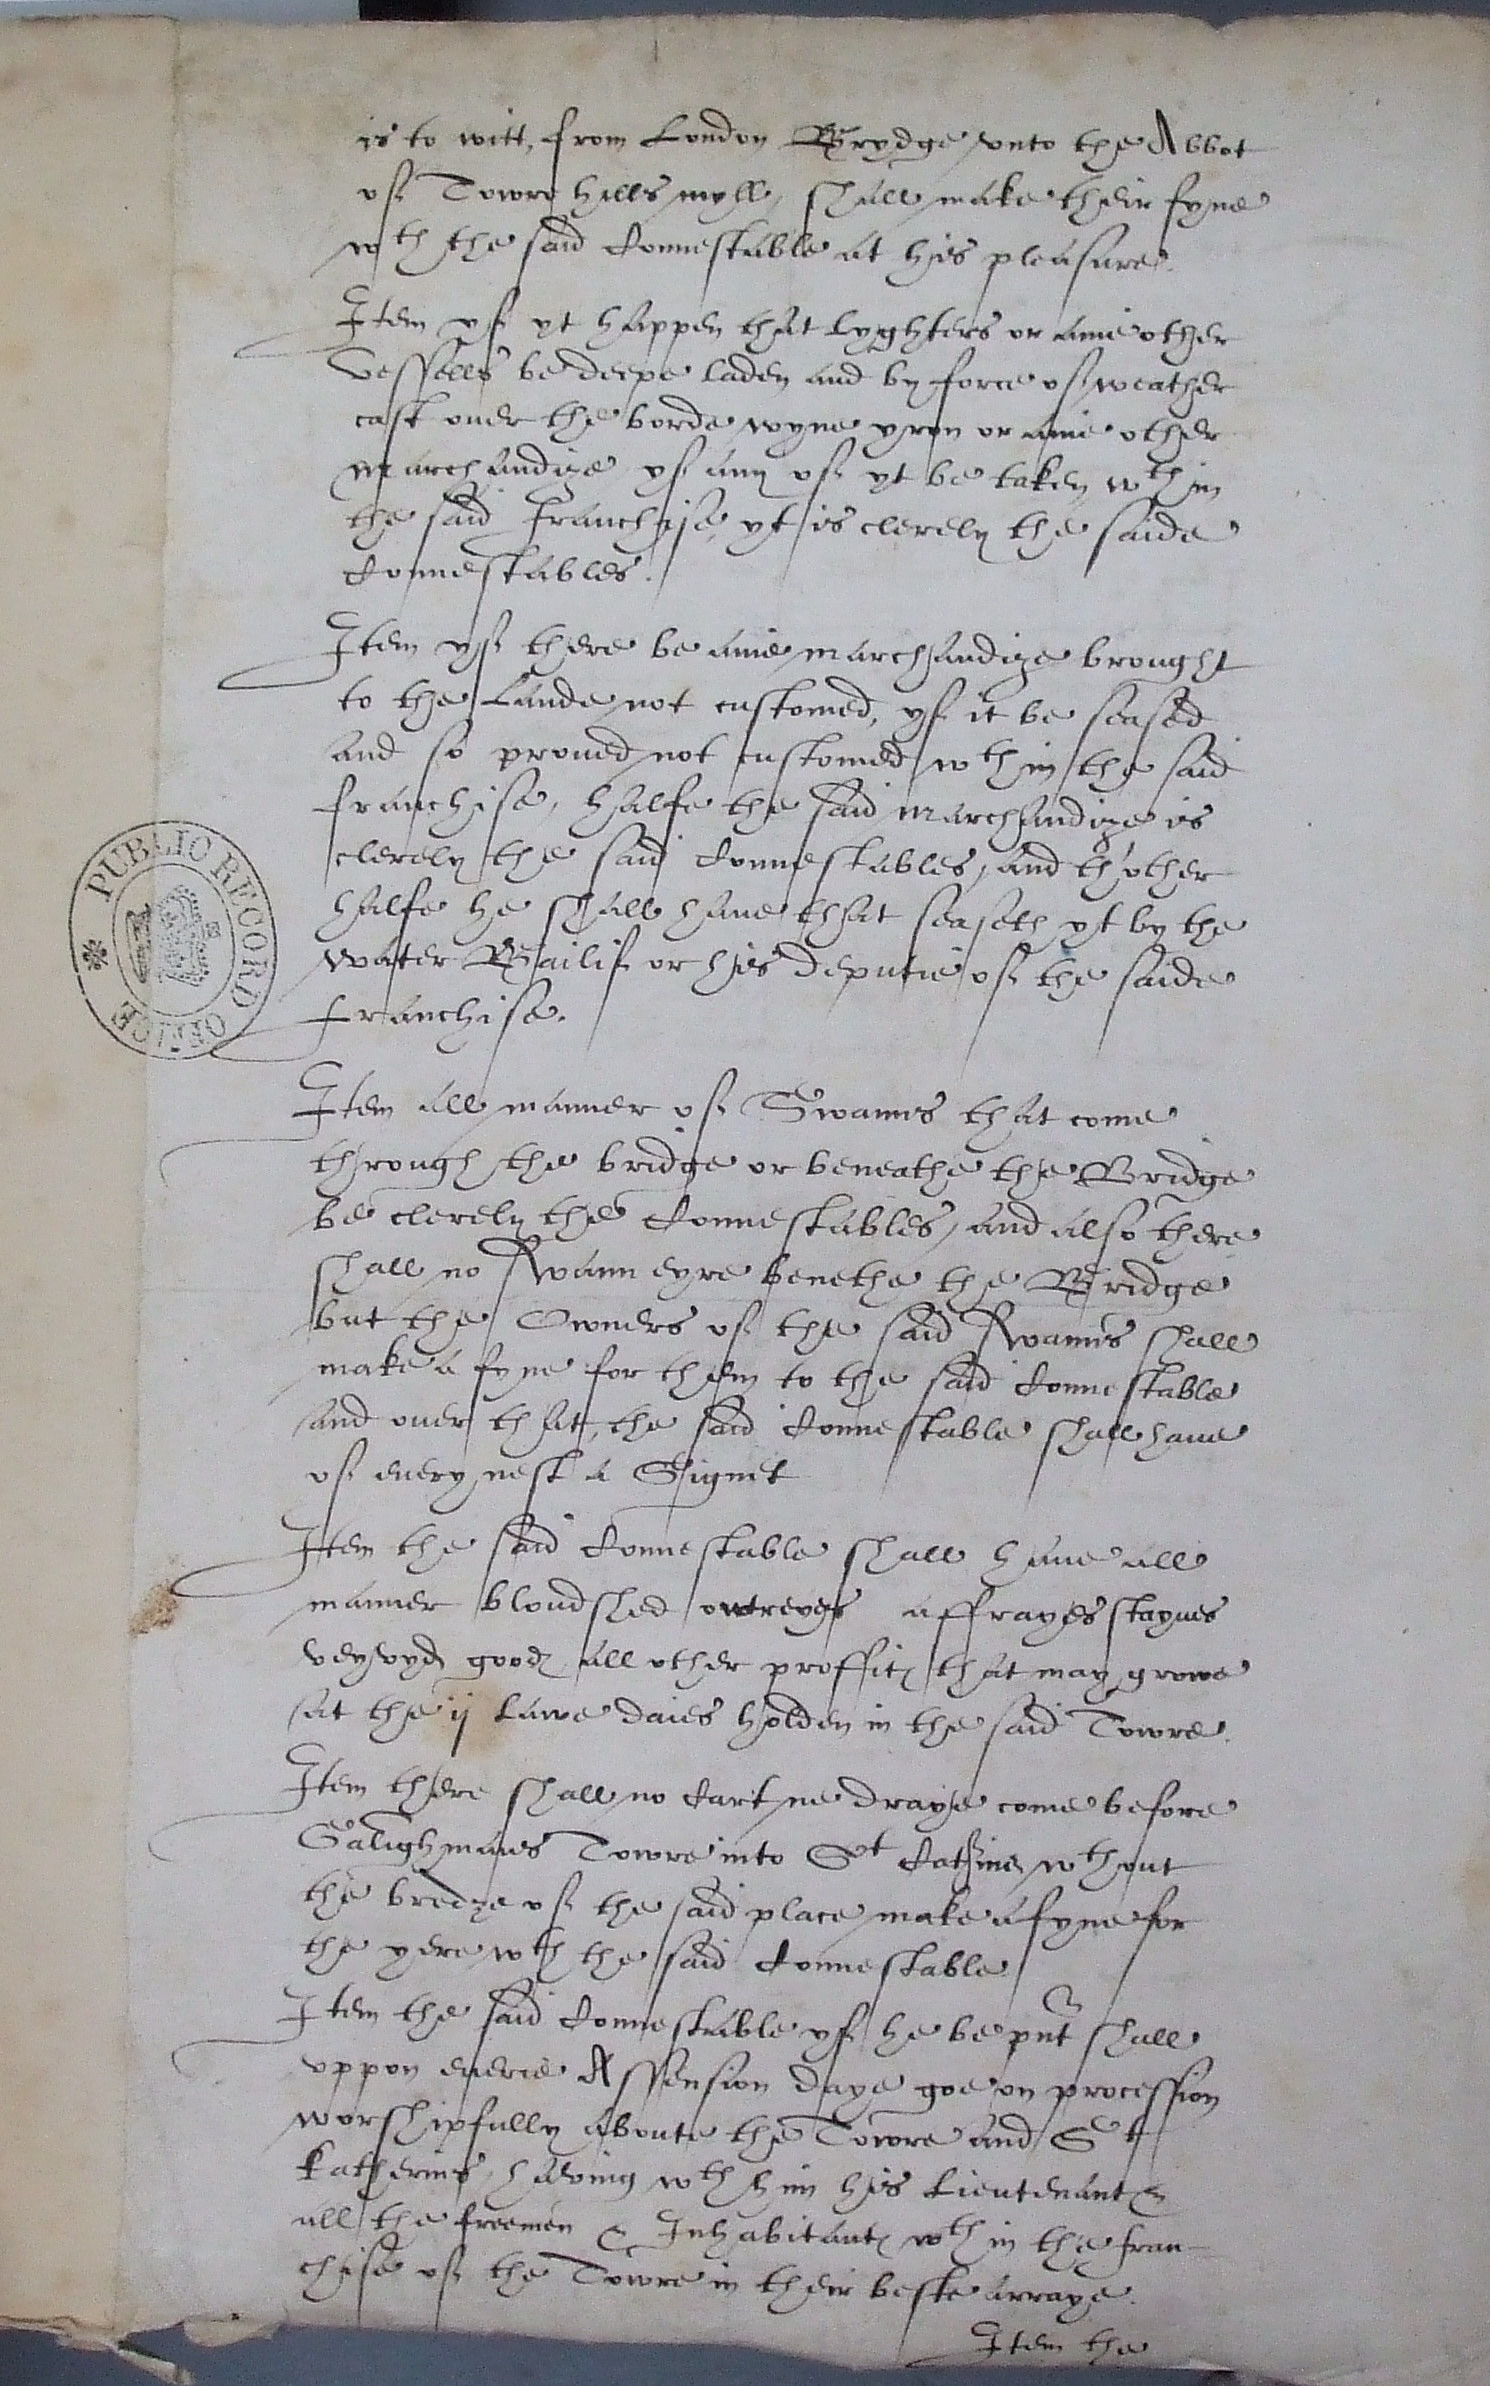 is to witt, from London Brydge vnto the Abbot
of Towre hills myll, shall make their fyne
wth the said Connestable at his pleasure.
Item yf yt happen that lyghters or anie other
vessells be deepe laden and by force of weather
cast ouer the borde wyne yron or anie other
marchandize yf any of yt be taken wthin
the said franchise, yt is clerely the saide
Connestables.
Item yf there be anie marchandize brought
to the Lande not customed, yf it be seased
and so proued not customed wthin the said
franchise, halfe the said marchandize is
clerely the said Connestables, and th'other
halfe he shall haue that seaseth yt by the
water Bailif or his deputie of the saide
franchise.
Item all manner of Swanns that come
through the bridge or beneathe the Bridge
be clerely the Connestables, and also there
shall no Swann eyre benethe the Bridge
but the Owners of the said Swanns shall
make a fyne for them to the said Connestable
and ouer that, the said Connestable shall haue
of euery nest a Signet
Item the said Connestable shall haue all
manner bloudshed owtreyes affrayes stayues
veyvyd good all other proffitz that may growe
at the ij Lawe daies holden in the said Towre.
Item there shall no Cart ne draye come before
Galighmans Towre into St Cathines wthout
the bredze of the said place make a fyne for
the yere wth the said Connestable
Item the said Connestable yf he be pnt shall
vppon euerie Assension daye goe on procession
worshipfully aboute the Towre and St
Katherins, having wth him his Lieutenant &
all the freemen & Inhabitantz wthin the fran-
chise of the Towre in their beste arraye.
Item the
PUBLIC RECORD OFFICE